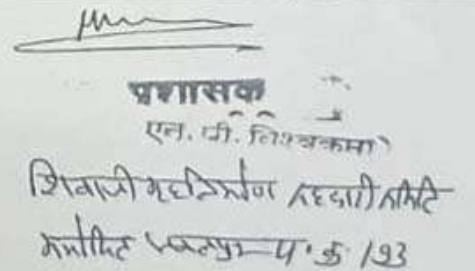 प्रशासक
एल. पी. विश्वकर्मा
शिवाजी गृहनिर्माण सहकारी समिति
मर्यादित जबलपुर प. क्र. /93